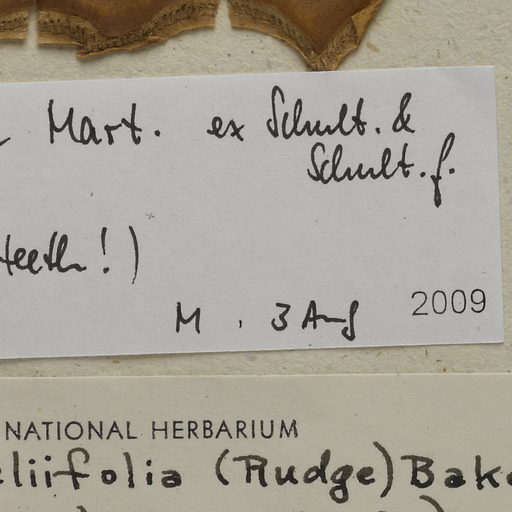 Mart. ex Schult. &
Schult. f.
teeth!)
M, 3 Aug 2009
NATIONAL HERBARIUM
eliifolia (Rudge) Bake